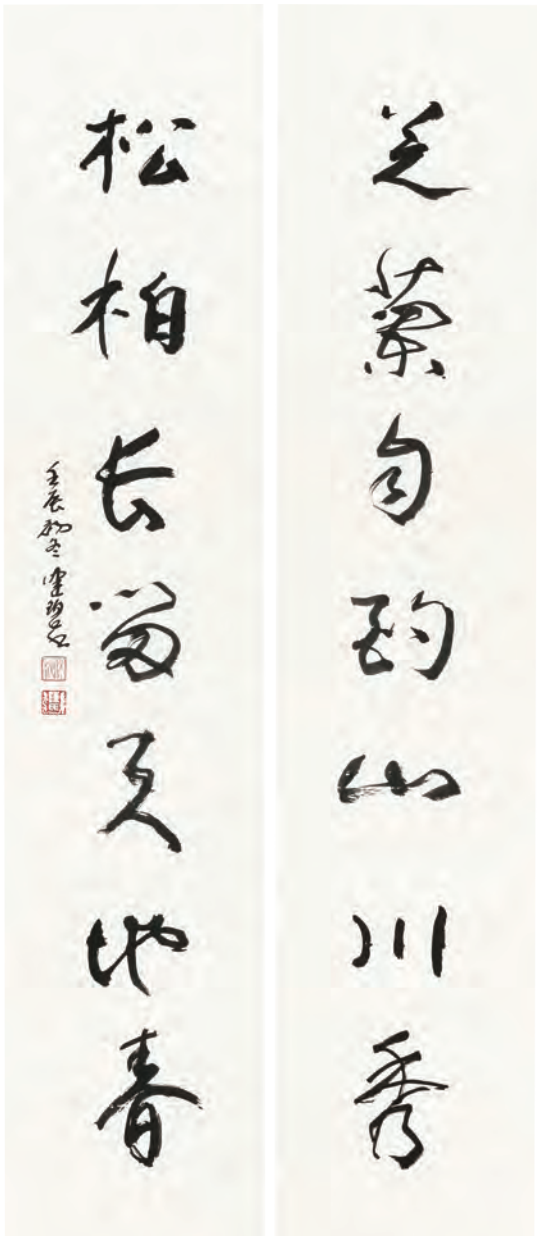 芝蘭自韵山川秀
松柏长留天地春
壬辰初冬